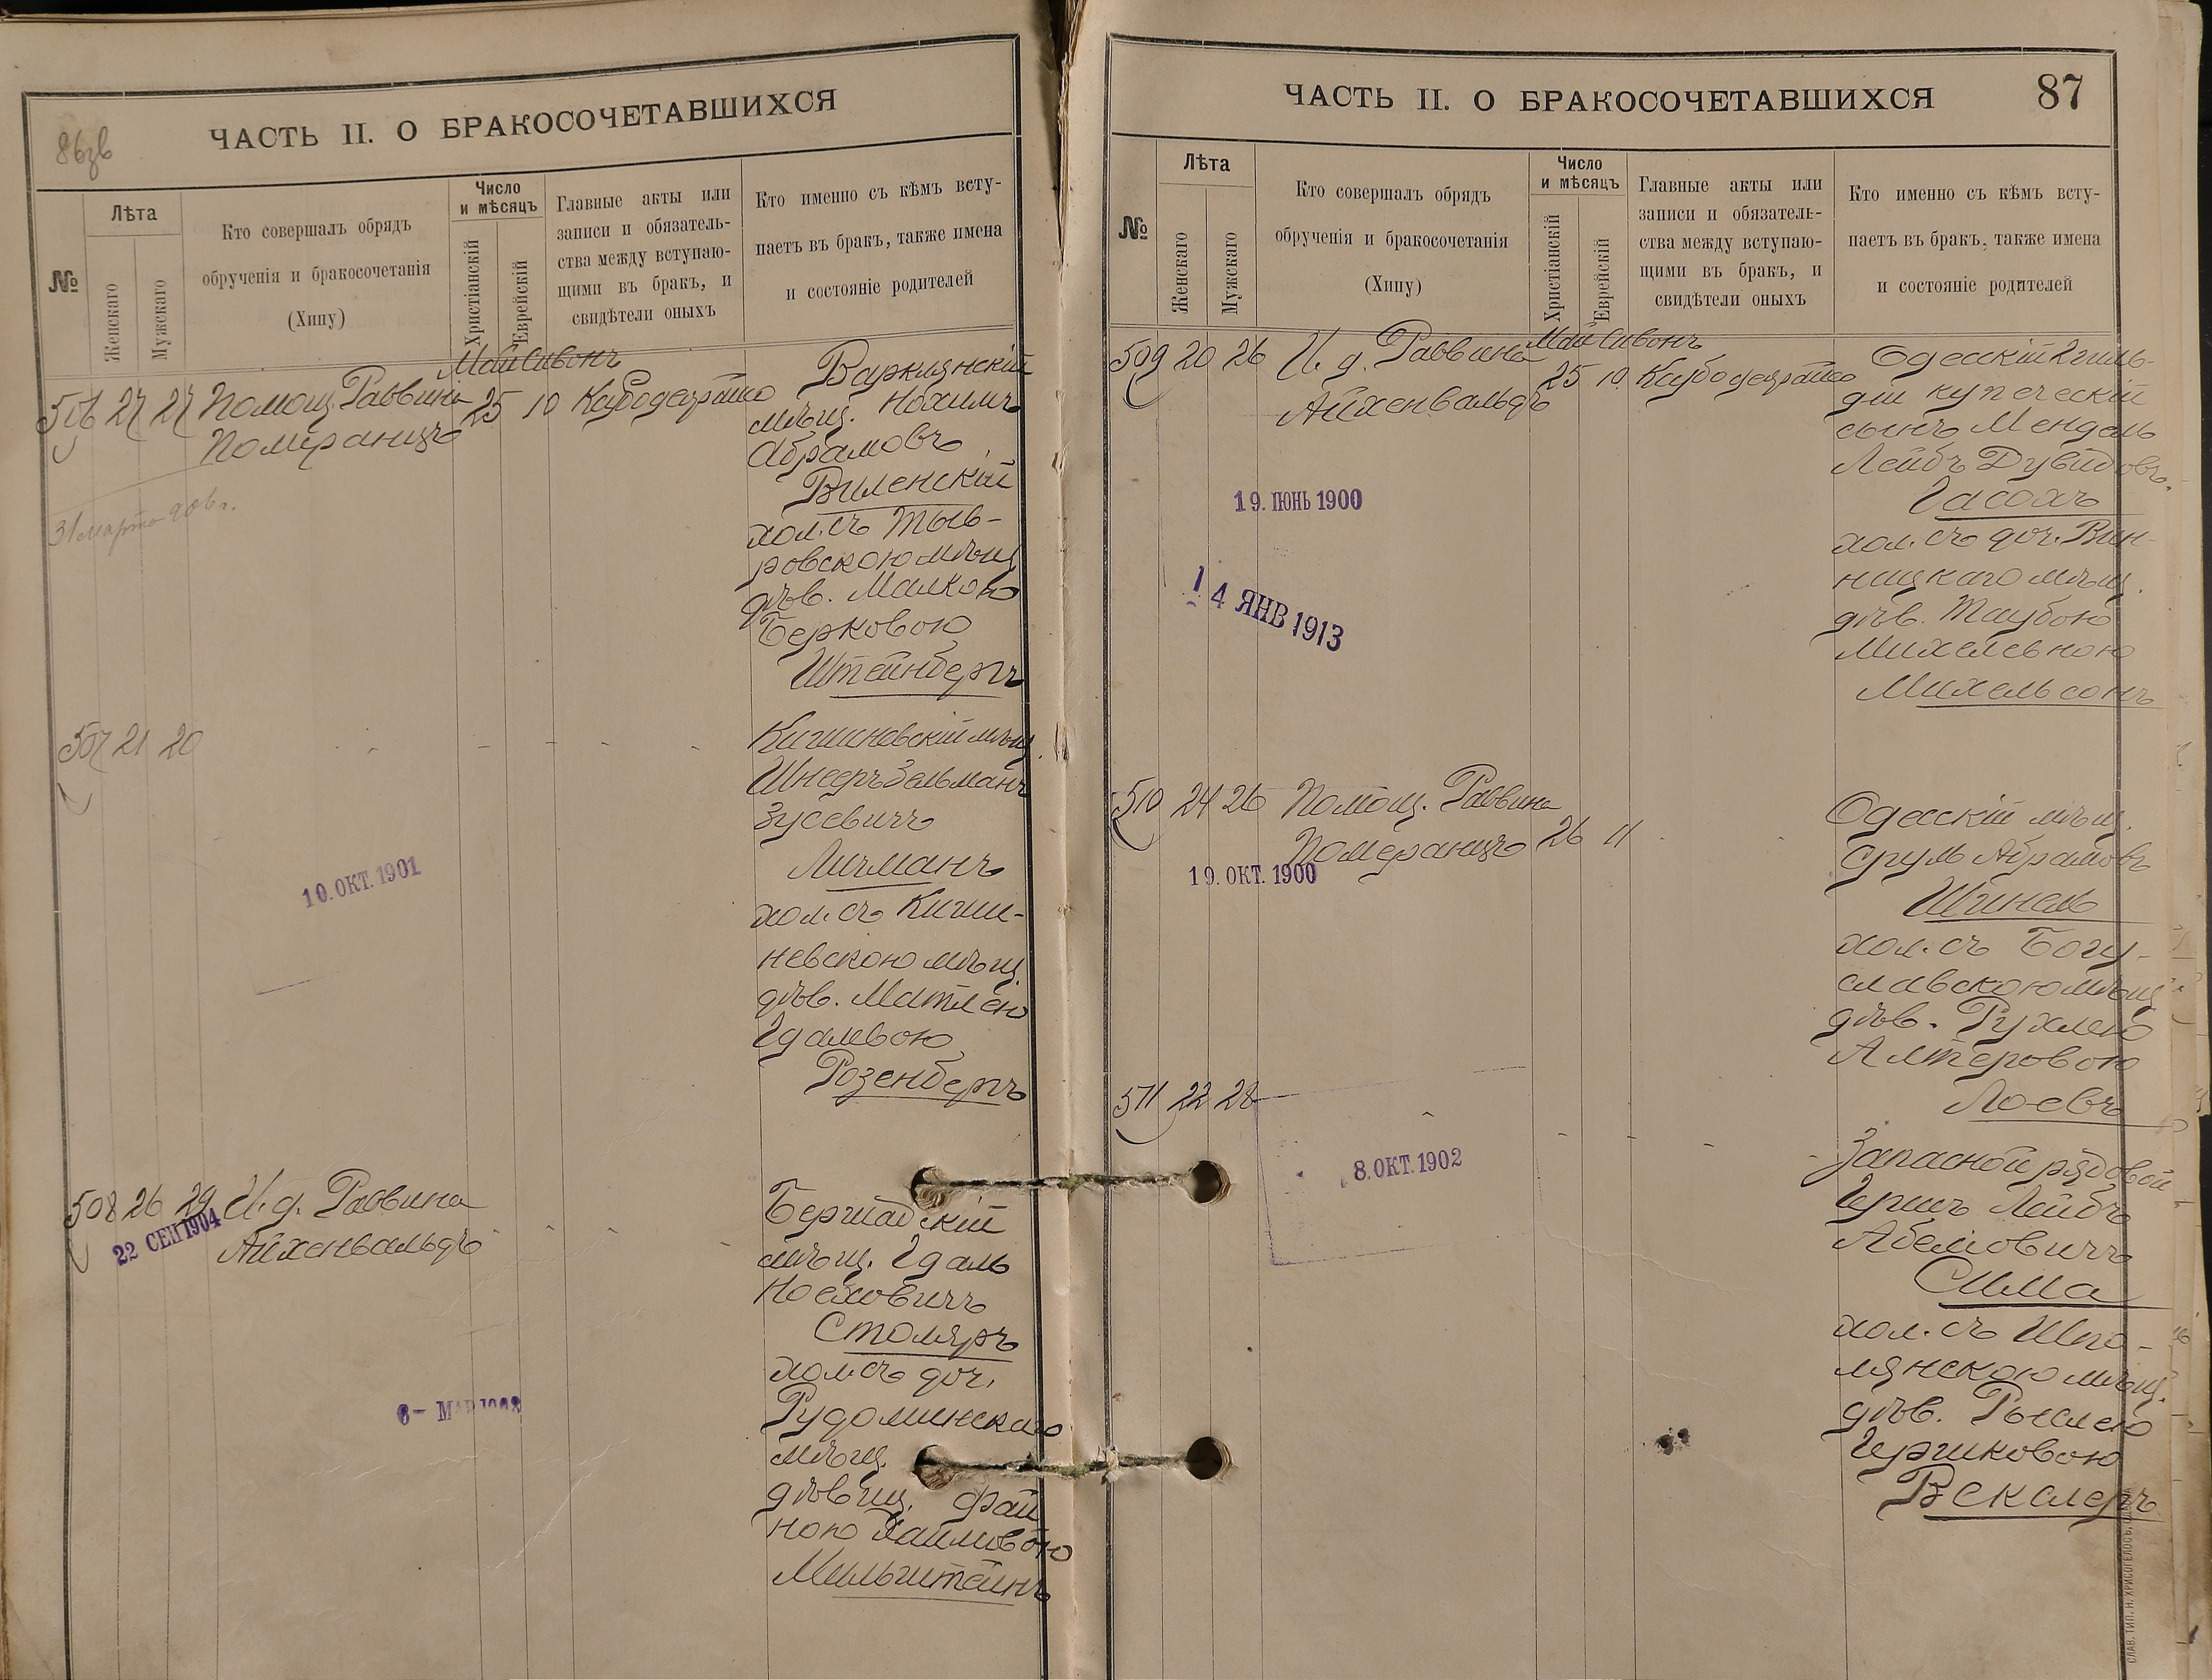 86зв
ЧАСТЬ II. О БРАКОСОЧЕТАВШИХСЯ
№
Лѣта
Женскаго
Мужскаго
Кто совершалъ обрядъ
обрученія и бракосочетанія
(Хипу)
Число
и мѣсяцъ
Христіанскій
Еврейскій
Главные акты или
записи и обязатель-
ства между вступаю-
щими въ бракъ, и
свидѣтели оныхъ
Кто именно съ кѣмъ всту-
паетъ въ бракъ, также имена
и состояніе родителей
Май Сивонъ
506 27 27 Помощ. Раввина 25 10
Померанцъ
31 марта 906 г.
мѣщ. Нохимъ
Абрамовъ
Виленскій
хол. съ Тыв-
ровскою мѣщ.
дѣв. Малкою
Берковою
Штейнбергъ
507 21 20
10. ОКТ. 1901
Кишиневскій мѣщ.
Шнееръ Зельманъ
Зусевичъ
Личманъ
хол. съ Киши-
невскою мѣщ.
дѣв. Матлею
Гдалевою
Розенбергъ
508 26 29 И. д. Раввина
Айхенвальдъ
22 СЕН 1904
6- МАР
Бершадскій
мѣщ. Гдаль
Ноеховичъ
Столяръ
хол. съ доч.
Рудоминскаго
мѣщ.
дѣвиц. Фай
ною Хаимовою
Мильштейнъ
ЧАСТЬ II. О БРАКОСОЧЕТАВШИХСЯ
87
№
Лѣта
Женскаго
Мужскаго
Кто совершалъ обрядъ
обрученія и бракосочетанія
(Хипу)
Число
и мѣсяцъ
Христіанскій
Еврейскій
Главные акты или
записи и обязатель-
ства между вступаю-
щими въ бракъ, и
свидѣтели оныхъ
Кто именно съ кѣмъ всту-
паетъ въ бракъ, также имена
и состояніе родителей
Май Сивонъ
509 20 26 И. д. Раввина 25 10
Айхенвальдъ
19. ІЮНЬ 1900
14 ЯНВ 1913
Одесскій 2 гиль-
діи купеческій
сынъ Мендель
Лейбъ Дувидовъ
Гасохъ
хол. съ доч. Вин-
ницкаго мѣщ.
дѣв. Таубою
Михелевною
Михельсонъ
510 24 26 Помощ. Раввина
Померанцъ 26 11
19. ОКТ. 1900
Одесскій мѣщ.
Сруль Абрамовъ
Шинель
хол. съ Богу-
славскою мѣщ.
дѣв. Рухлею
Алтеровою
Лоевъ
511 22 28
8. ОКТ. 1902
Запасной рядовой
Гершъ Лейбъ
Абеловичъ
Сима
хол. съ Шпо-
лянскою мѣщ.
дѣв. Рыслею
Гершковою
Векслеръ